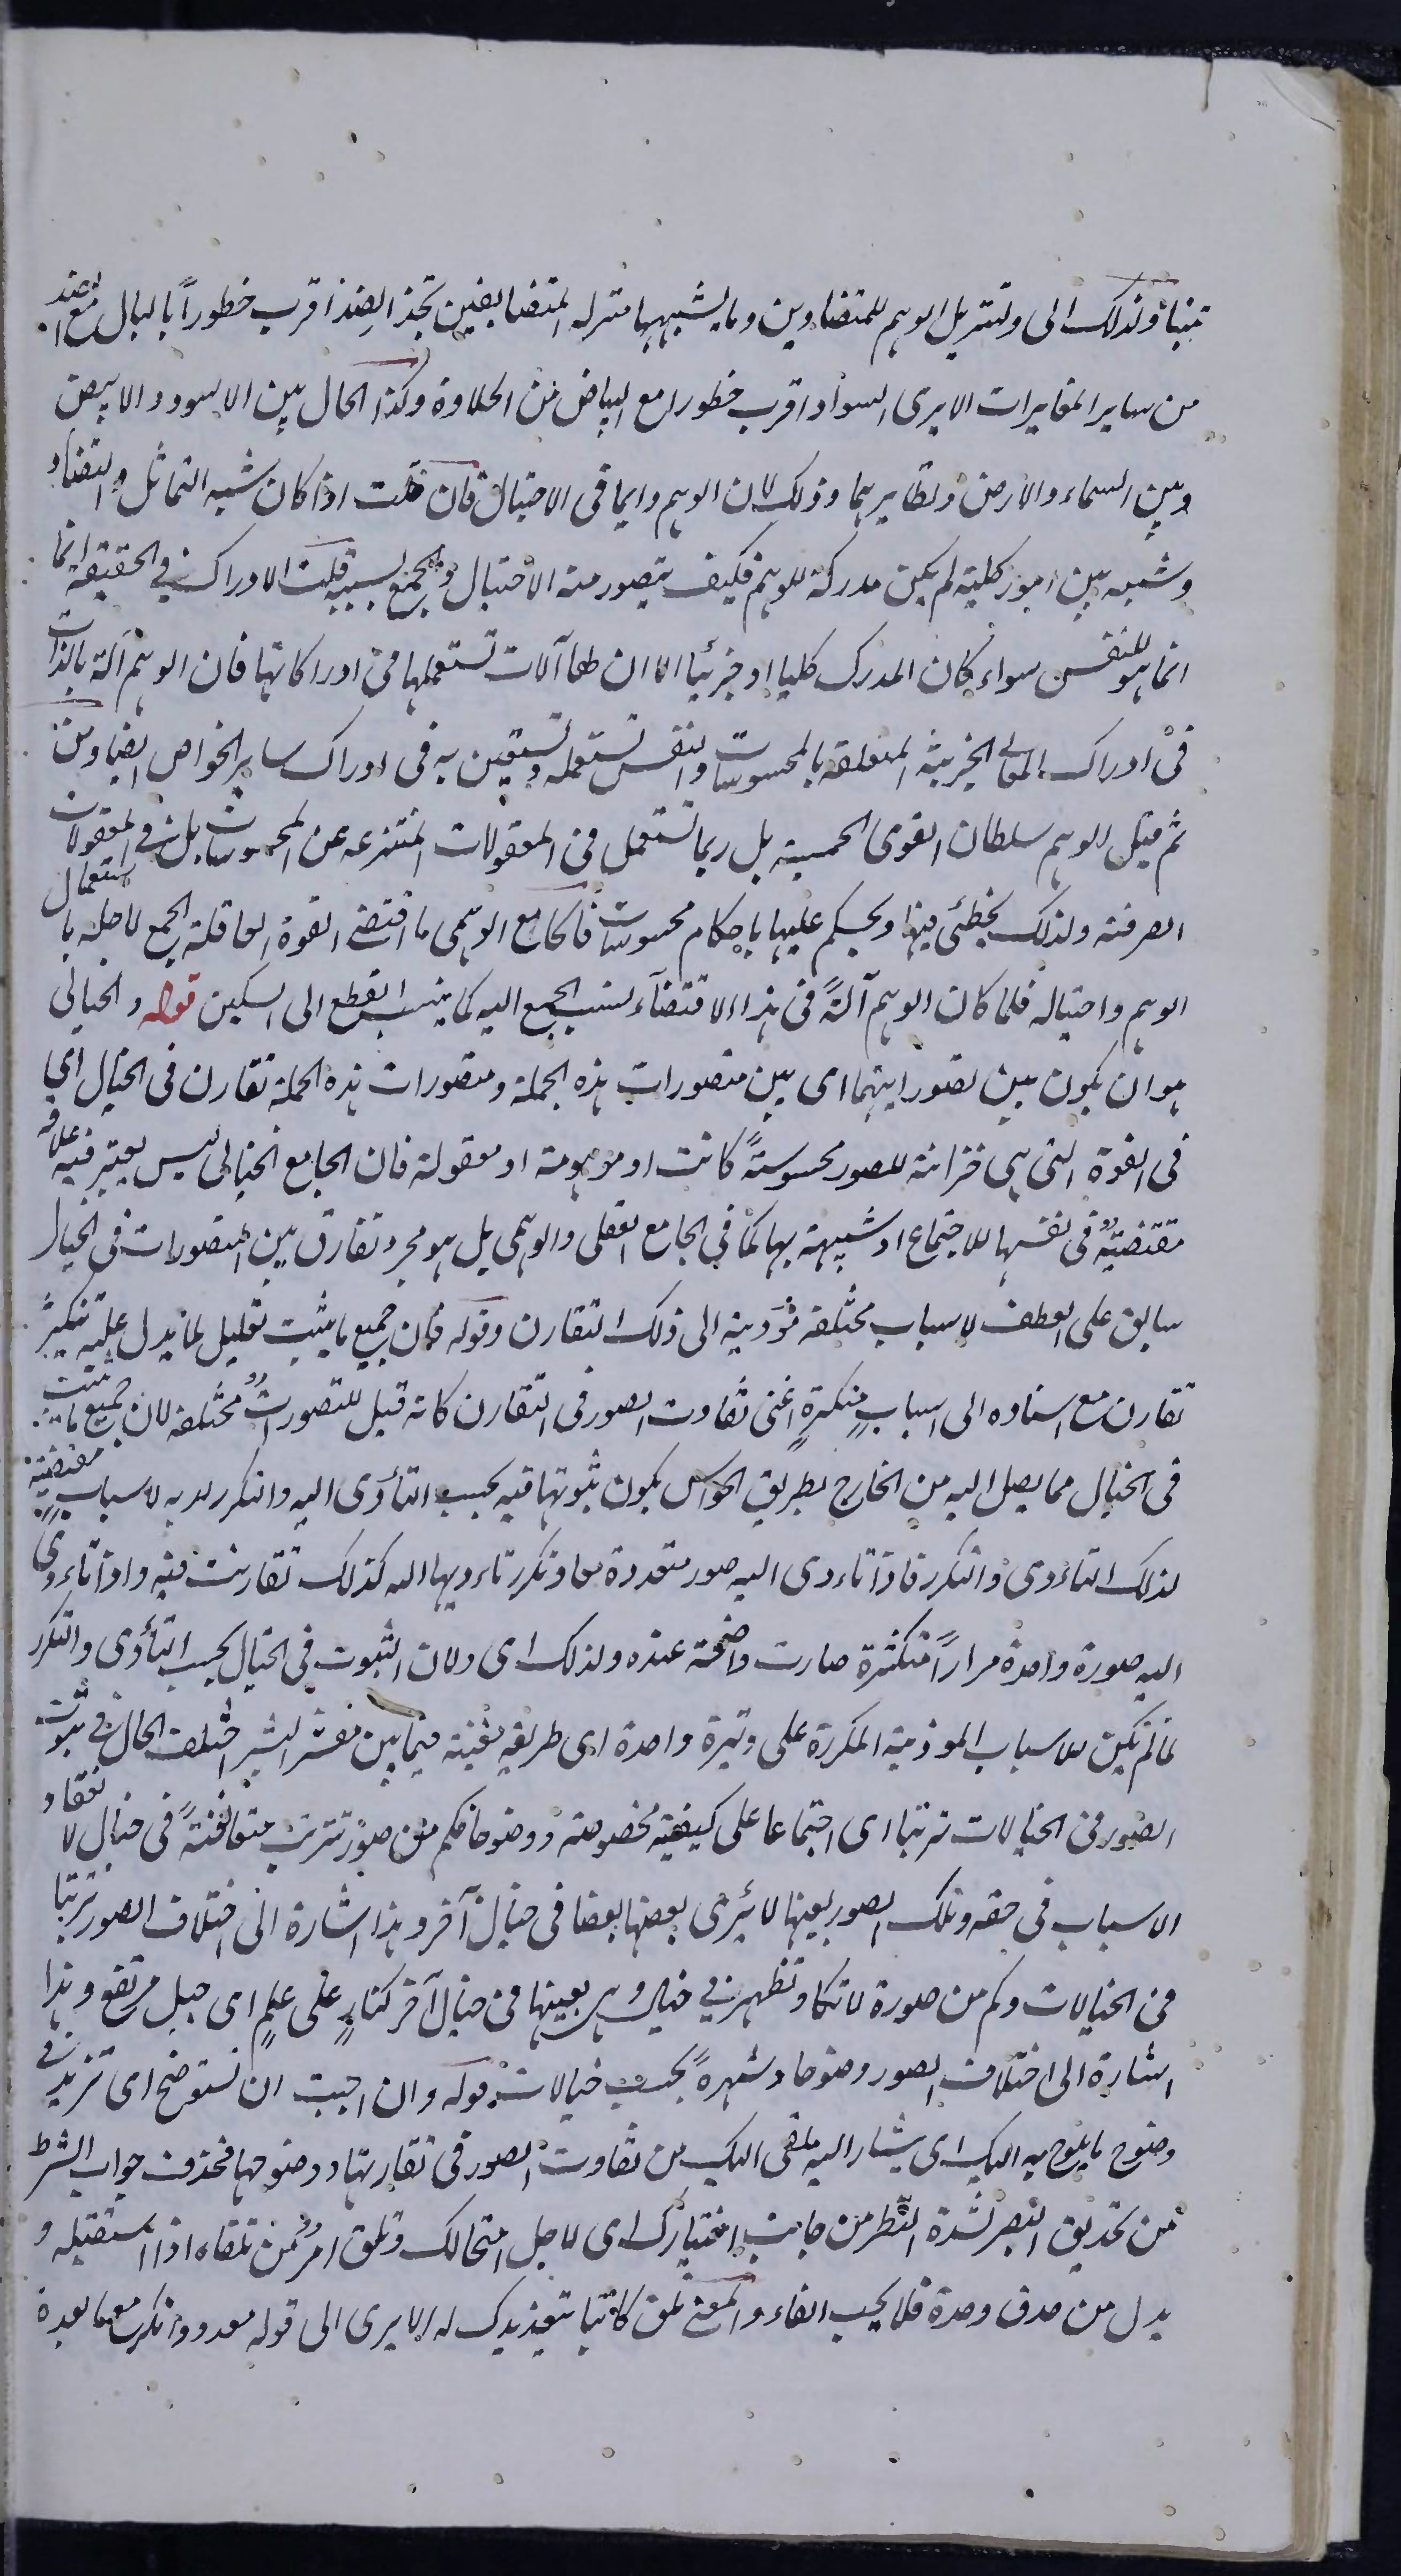 تنبأ ولذلك الى ولتنزيل الوهم للمتضادين وما يشبههما منزلة المتضايفين تجد الضد اقرب خطوراً بالبال مع الضد
من ساير المغايرات الا يرى السواد اقرب خطورا مع البياض من الحلاوة وكذا الحال بين الاسود والابيض
وبين السماء والارض ونظايرهما وذلك لان الوهم وايما فى الاحتيال فان قلت اذا كان شبه التماثل والتضاد
وشبهه بين امور كلية لم يكن مدركة للوهم فكيف يتصور منه الاحتيال والجمع بسببه قلت الادراك فى الحقيقة انما
انما هو للنفس سواء كان المدرك كليا او جزئيا الا ان لها آلات تستعملها فى ادراكاتها فان الوهم آلة بالذات
فى ادراك المعانى الجزئية المتعلقة بالمحسوسات والنفس تستعمله وتستعين به فى ادراك ساير الخواص ايضا ومن
ثم قيل الوهم سلطان القوى الحسية بل ربما تستعمل فى المعقولات المنتزعة عن المحسوسات بل فى المعقولات
الصرفة ولذلك يخطئ فيها ويحكم عليها باحكام محسوسات فالجامع الوهمى ما اقتضى القوة العاقلة الجمع لاجله باستعمال
الوهم واحتياله فلما كان الوهم آلةً فى هذا الاقتضآء نسب الجمع اليه كما ينسب القطع الى السكين قوله والخيالى
هو ان يكون بين تصوراتهما اى بين متصورات هذه الجملة ومتصورات هذه الجملة تقارن فى الخيال اى
فى القوة التى هى خزانة للصور محسوسةً كانت او موهومة او معقولة فان الجامع الخيالى ليس يعتبر فيه علاقة
مقتضيةٌ فى نفسها للاجتماع او شبيهة بها كما فى الجامع العقلى والوهمى بل هو مجرد تقارن بين المتصورات فى الخيال
سابق على العطف لاسباب مختلفة مؤدية الى ذلك التقارن وقوله فان جميع ما يثبت تعليل لما يدل عليه تنكيرُ
تقارن مع اسناده الى اسبابٍ منكرةٍ اعنى تفاوت الصور فى التقارن كانه قيل للتصورات مختلفة لان جميع ما يثبت
فى الخيال مما يصل اليه من الخارج بطريق الحواس يكون ثبوتها فيه بحسب التأدى اليه والتكرر لديه لاسباب مقتضية
لذلك التاءدى والتكرر فاذا تاءدى اليه صور متعددة معا وتكرر تاءديها اليه كذلك تقارنت فيه واذا تاءدى
اليه صورة واحدة مراراً متكثرة صارت واضحة عنده ولذلك اى ولان الثبوت فى الخيال بحسب التأدى والتكرر
لما لم تكن للاسباب الموذية المكررة على وتيرة واحدة اى طريقة معينة فيما بين معشر البشر اختلف الحال فى ثبوت
الصور فى الخيالات ترتبا اى اجتماعا على كيفية مخصوصة ووضوحا فكم من صور تترتب متعانقةً فى خيال لانعقاد
الاسباب فى حقه وتلك الصور بعينها لا يُرى بعضها بعضا فى خيال آخر وهذا اشارة الى اختلاف الصور ترتبا
فى الخيالات وكم من صورة لا تكاد تظهر فى خيال وهى بعينها فى خيال آخر كنارٍ على علمٍ اى جبل مرتفع وهذا
اشارة الى اختلاف الصور وضوحا وشهرةً بحسب خيالات قوله وان احببت ان تستوضح اى تزيد فى
وضوح ما يلوح به اليك اى يشار اليه يلقى اليك من تفاوت الصور فى تقاربها ووضوحها فحذف جواب الشرط
من تحديق البصر لشدة النظر من جانب اختيارك اى لاجل امتحالك وتلق امرٌ من تلقاه اذا استقبله و
يدل من صدق وحدة فلا يجب الفاء والمعنى تلق كاتبا بتعديدك له الا يرى الى قوله معدود وانكره مع ما بعده